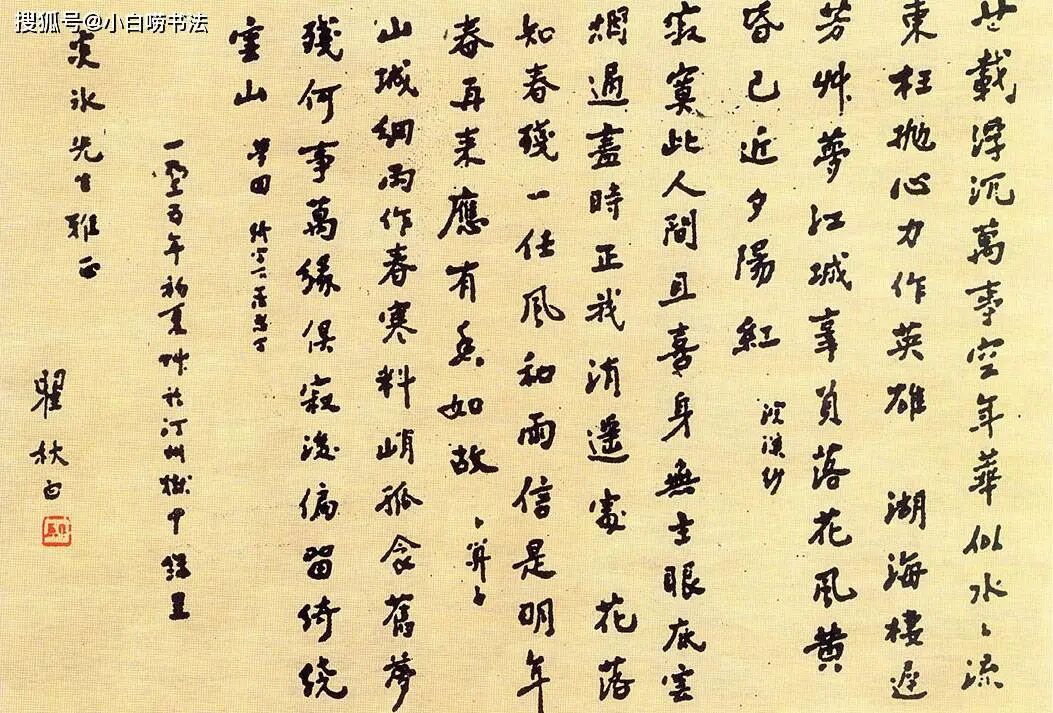 搜狐号@小白唠书法
廿載浮沉萬事空年華似水〻流
東枉抛心力作英雄 湖海棲遲
芳艸夢江城辜負落花風黄
昏已近夕陽紅 浣溪紗
寂寞此人間且喜身無主眼底雲
烟過盡時正我消遥處 花落
知春殘一任風和雨信是明年
春再來應有香如故 卜算子
山城細雨作春寒料峭孤衾舊夢
殘何事萬緣俱寂後偏留綺繞
雲山 夢回
年初夏艸於汀州獄中錄呈
冰先生雅正
瞿秋白